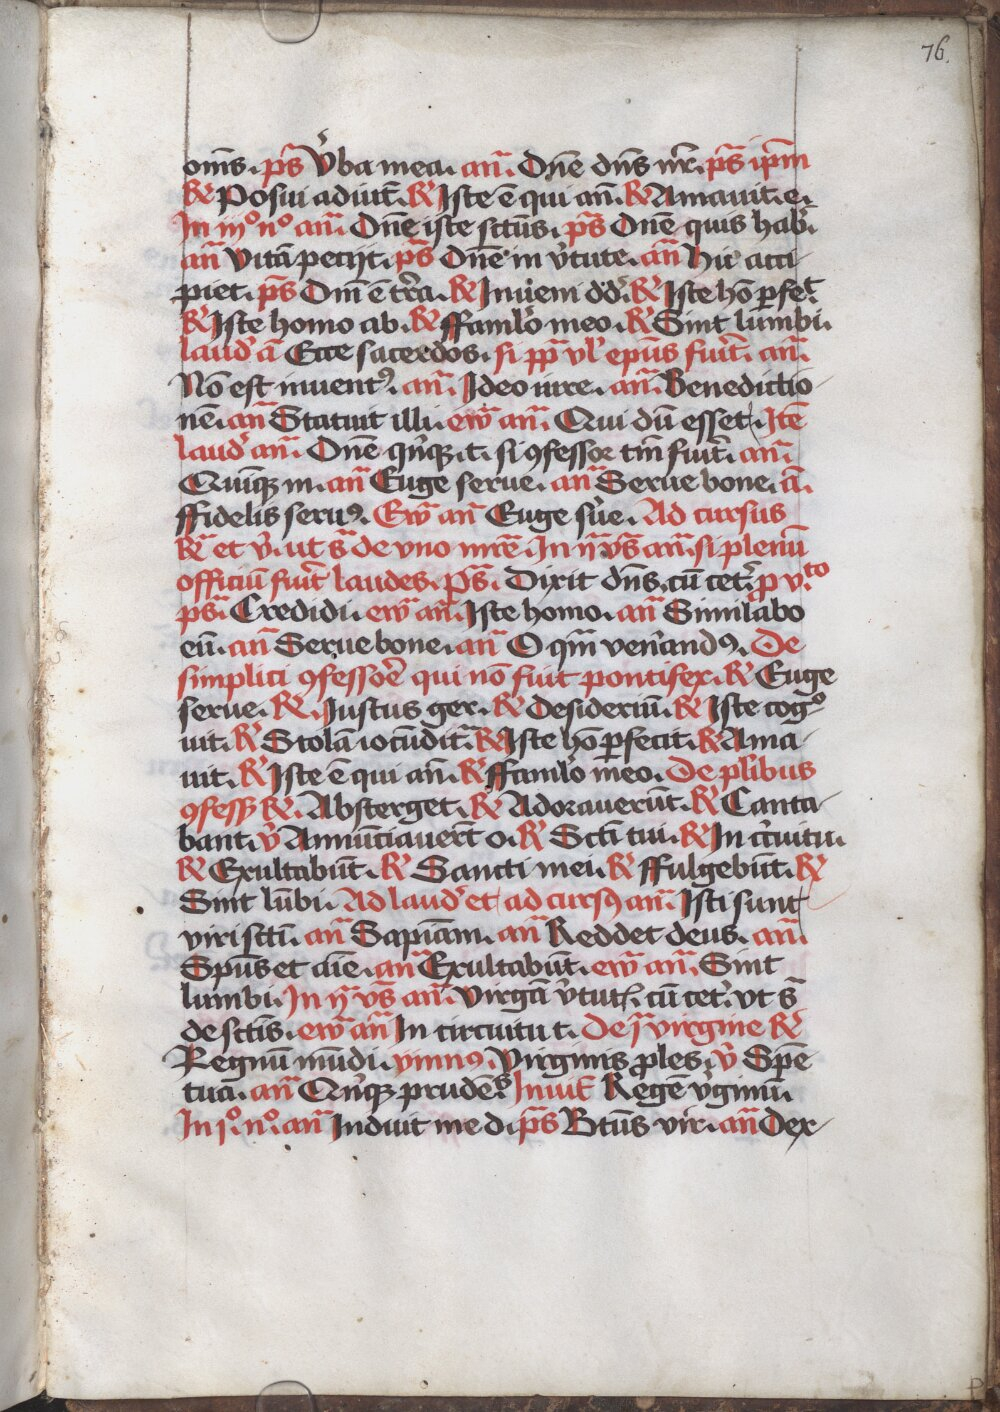 76.
om̄s. pš v̓ba mea. an̄. Dn̄e dn̄s nr̄. pš ip̄m
℟ Posui adiut̄. ℟ Iste ē qui an̄. ℟ Amauit. e.
In iij° n° an̄. Dn̄e iste sctūs. pš Dn̄e quis hab̓.
an̄ Vitā petijt. pš Dn̄e in v̓tute. an̄ Hic acci-
piet. pš Dn̄i ē tr̄a. ℟ Inueni dd̓. ℟ Iste hō ꝑfec̄t.
℟ Iste homo ab. ℟ ffamlo meo. ℟ Sint lumbi.
laud̓ an̄ Ecce sacerdos. si pp̄ vl̓ ep̄us fuit̄. an̄.
Nō est inuent⁹. an̄. Ideo iure. an̄. Benedictio-
nē. an̄ Statuit illi. ew̄ an̄. Qui dū esset. Itē
laud̓ an̄. Dn̄e qn̓qꝫ. t. si ꝯfessor tm̄ fuit̄. an̄.
Quinqꝫ m. an̄ Euge serue. an̄ Serue bone. an̄.
ffidelis seru⁹. Ew̄ an̄ Euge sue. Ad cursus
℟ et v̓. ut š de vno mr̄e. In ij vš an̄. si plenū
officiū fuit̄ laudes. pš. Dixit dn̄s. cū cet̓. p v.to
pš. Credidi. ew̄ an̄. Iste homo. an̄ Similabo
eū. an̄ Serue bone. an̄ O qm̄ ven̓and⁹. De
simplici ꝯfessoē qui nō fuit pontifex. ℟ Euge
serue. ℟. Justus ger. ℟ Desideriū. ℟ Iste cog°-
uit. ℟ Stolā iocūdit̓. ℟ Iste hō ꝑfecit. ℟ Ama-
uit. ℟ Iste ē qui an̄. ℟ ffamlo meo. De pl̓ibus
ꝯfess̓ ℟. Absterget. ℟ Adorauerūt. ℟ Canta-
bant. v̓ Annūciauer̄t o. ℟ Scti tui. ℟ In cr̓cuitu.
℟ Exultabūt. ℟ Sancti mei. ℟ ffulgebūt. ℟
Sint lūbi. Ad laud̓ et ad curs⁹ an̄. Isti sunt
viri sctī. an̄ Sapiam. an̄ Reddet deus. an̄.
Spūs et aīe. an̄ Exultabūt. ew̄ an̄. Sint
lumbi. In ij vš an̄. Virgā v̓tut̓. cū cet̓. vt š
de sctīs. ew̄ an̄ In circuitu t. De j virgine ℟
Regnū mūdi. ymn⁹. Virginis ꝓles. v̓ Spē
tua. an̄ Qn̓qꝫ prudēs Inuit̄ Regē v̓ginū.
In j°. n°. an̄ Induit me d. pš Btūs vir. an̄ Dex-